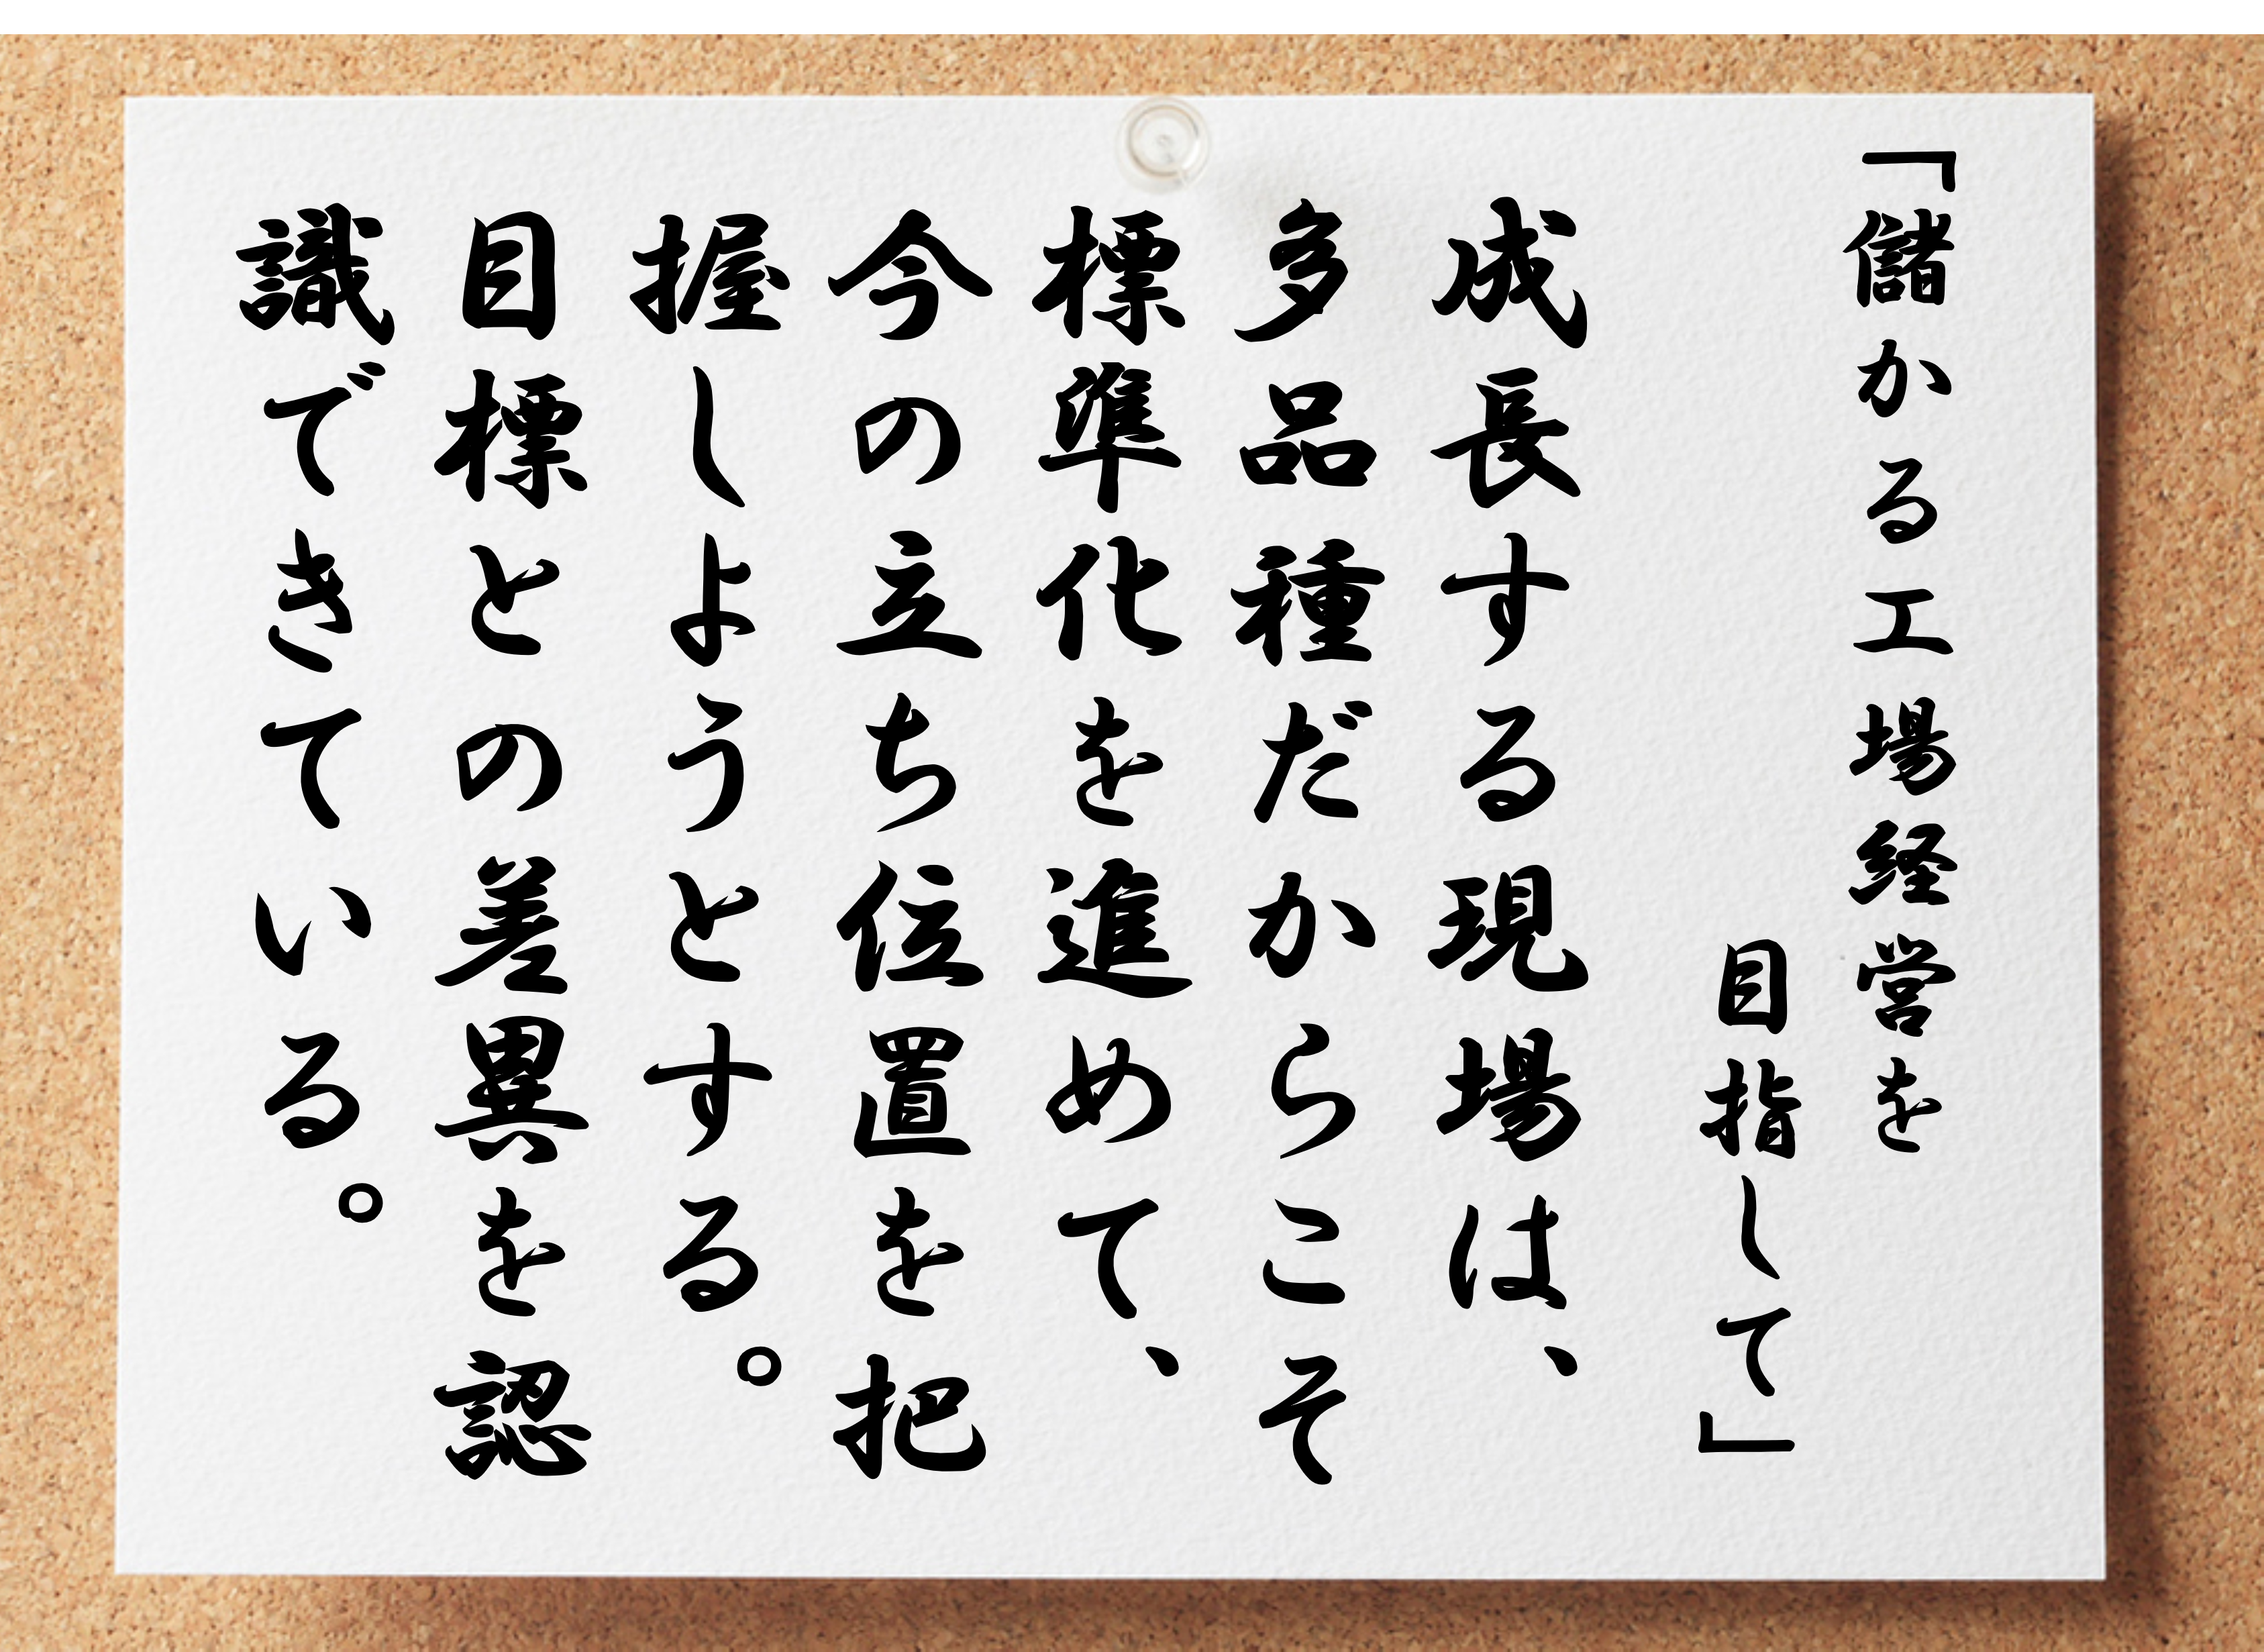 「儲かる工場経営を
目指して」
成長する現場は、
多品種だからこそ
標準化を進めて、
今の立ち位置を把
握しようとする。
目標との差異を認
識できている。